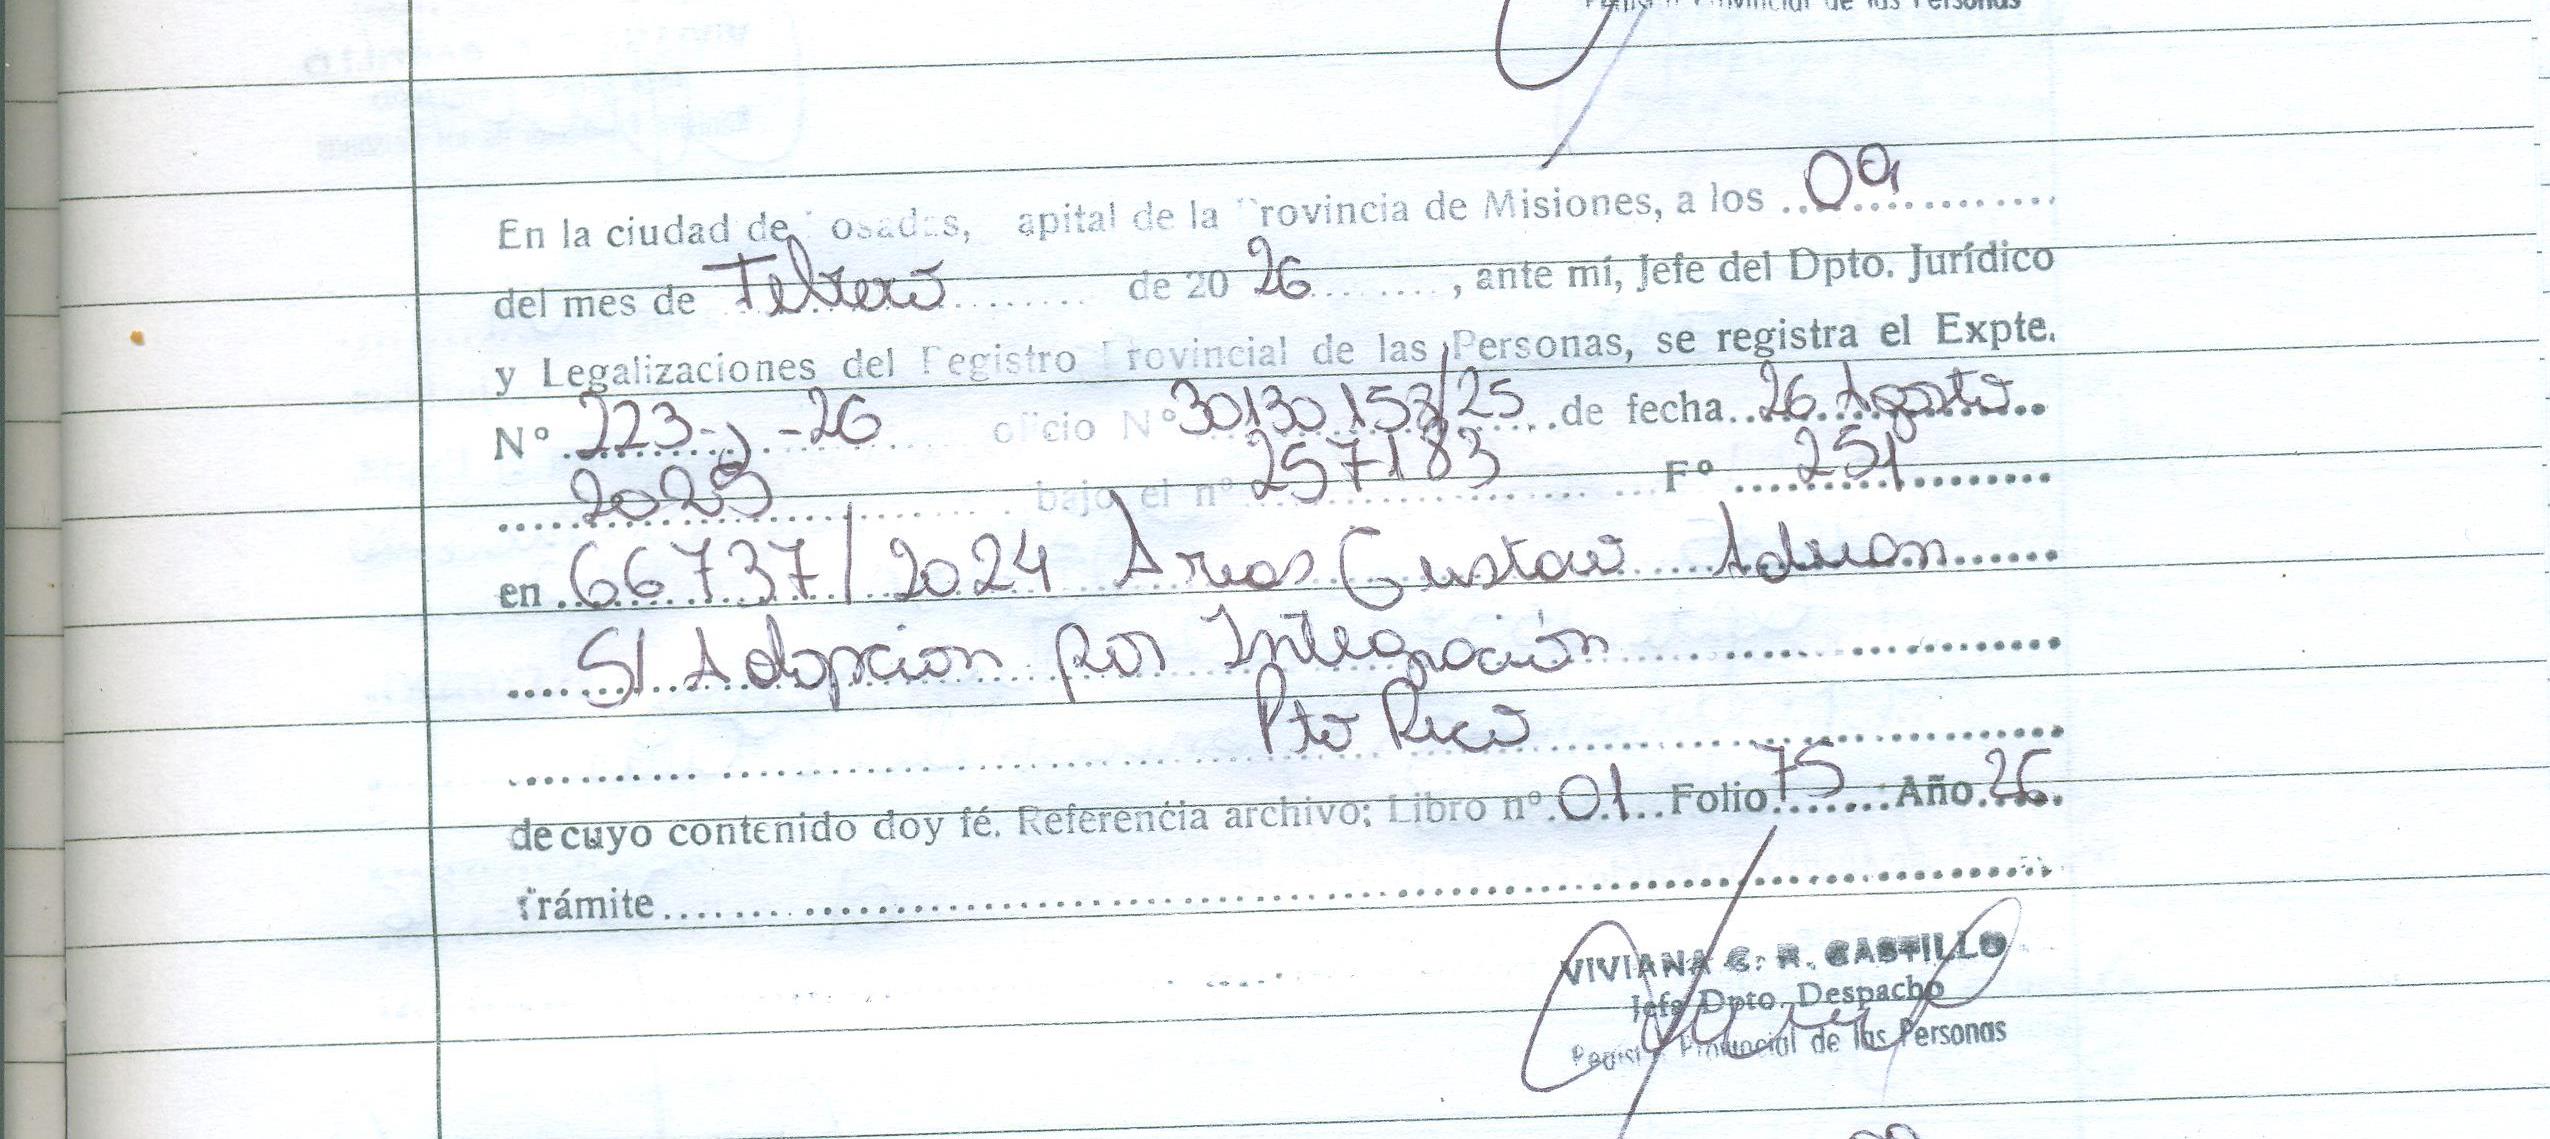 Provincial de las Personas
En la ciudad de Posadas, Capital de la Provincia de Misiones, a los 09
del mes de Febrero de 20 26, ante mí, Jefe del Dpto. Jurídico
y Legalizaciones del Registro Provincial de las Personas, se registra el Expte.
Nº 223-J-26 oficio Nº 30130153/25 de fecha 26 Agosto
2025 bajo el nº 257183 Fº 251
en 66737/2024 Arias Gustavo Adrian
S/ Adopcion por Integración
Pto Rico
de cuyo contenido doy fé. Referencia archivo; Libro nº 01 Folio 75 Año 26
Trámite
VIVIANA C. R. CASTILLO
Jefe Dpto. Despacho
Registro Provincial de las Personas